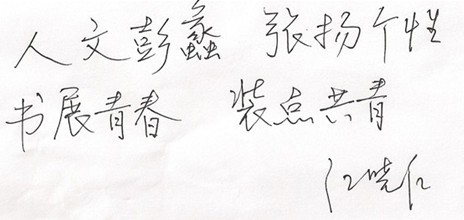 人文彭蠡 张扬个性
书展青春 装点共青
江晓仁